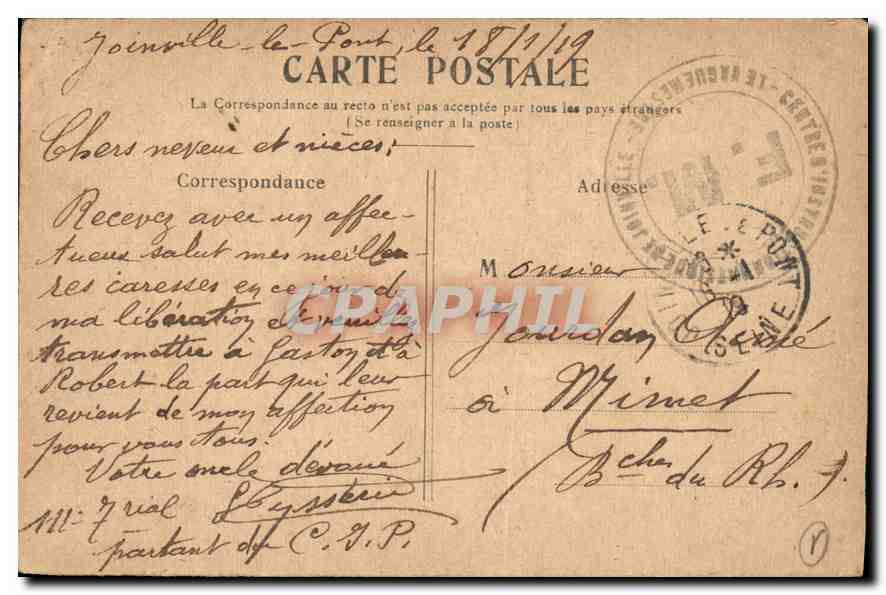 Joinville-le-Pont, le 18/1/19
CARTE POSTALE
La Correspondance au recto n'est pas acceptée par tous les pays étrangers
(Se renseigner à la poste)
Chers neveux et nièces;
Correspondance
Recevez avec un affec-
tueux salut mes meilleu-
res caresses en ce jour de
ma libération et veuillez
transmettre à Gaston et à
Robert la part qui leur
revient de mon affection
pour vous tous.
Votre oncle dévoué
partant du C.I.P.
Adresse
Monsieur
Jourdan Aimé
à Mimet
(Bches du Rh.)
LE VAGUEMESTRE - CENTRE D'INSTRUCTION
JOINVILLE
F. M.
JOINVILLE-LE-PONT
SEINE
CPAPHIL